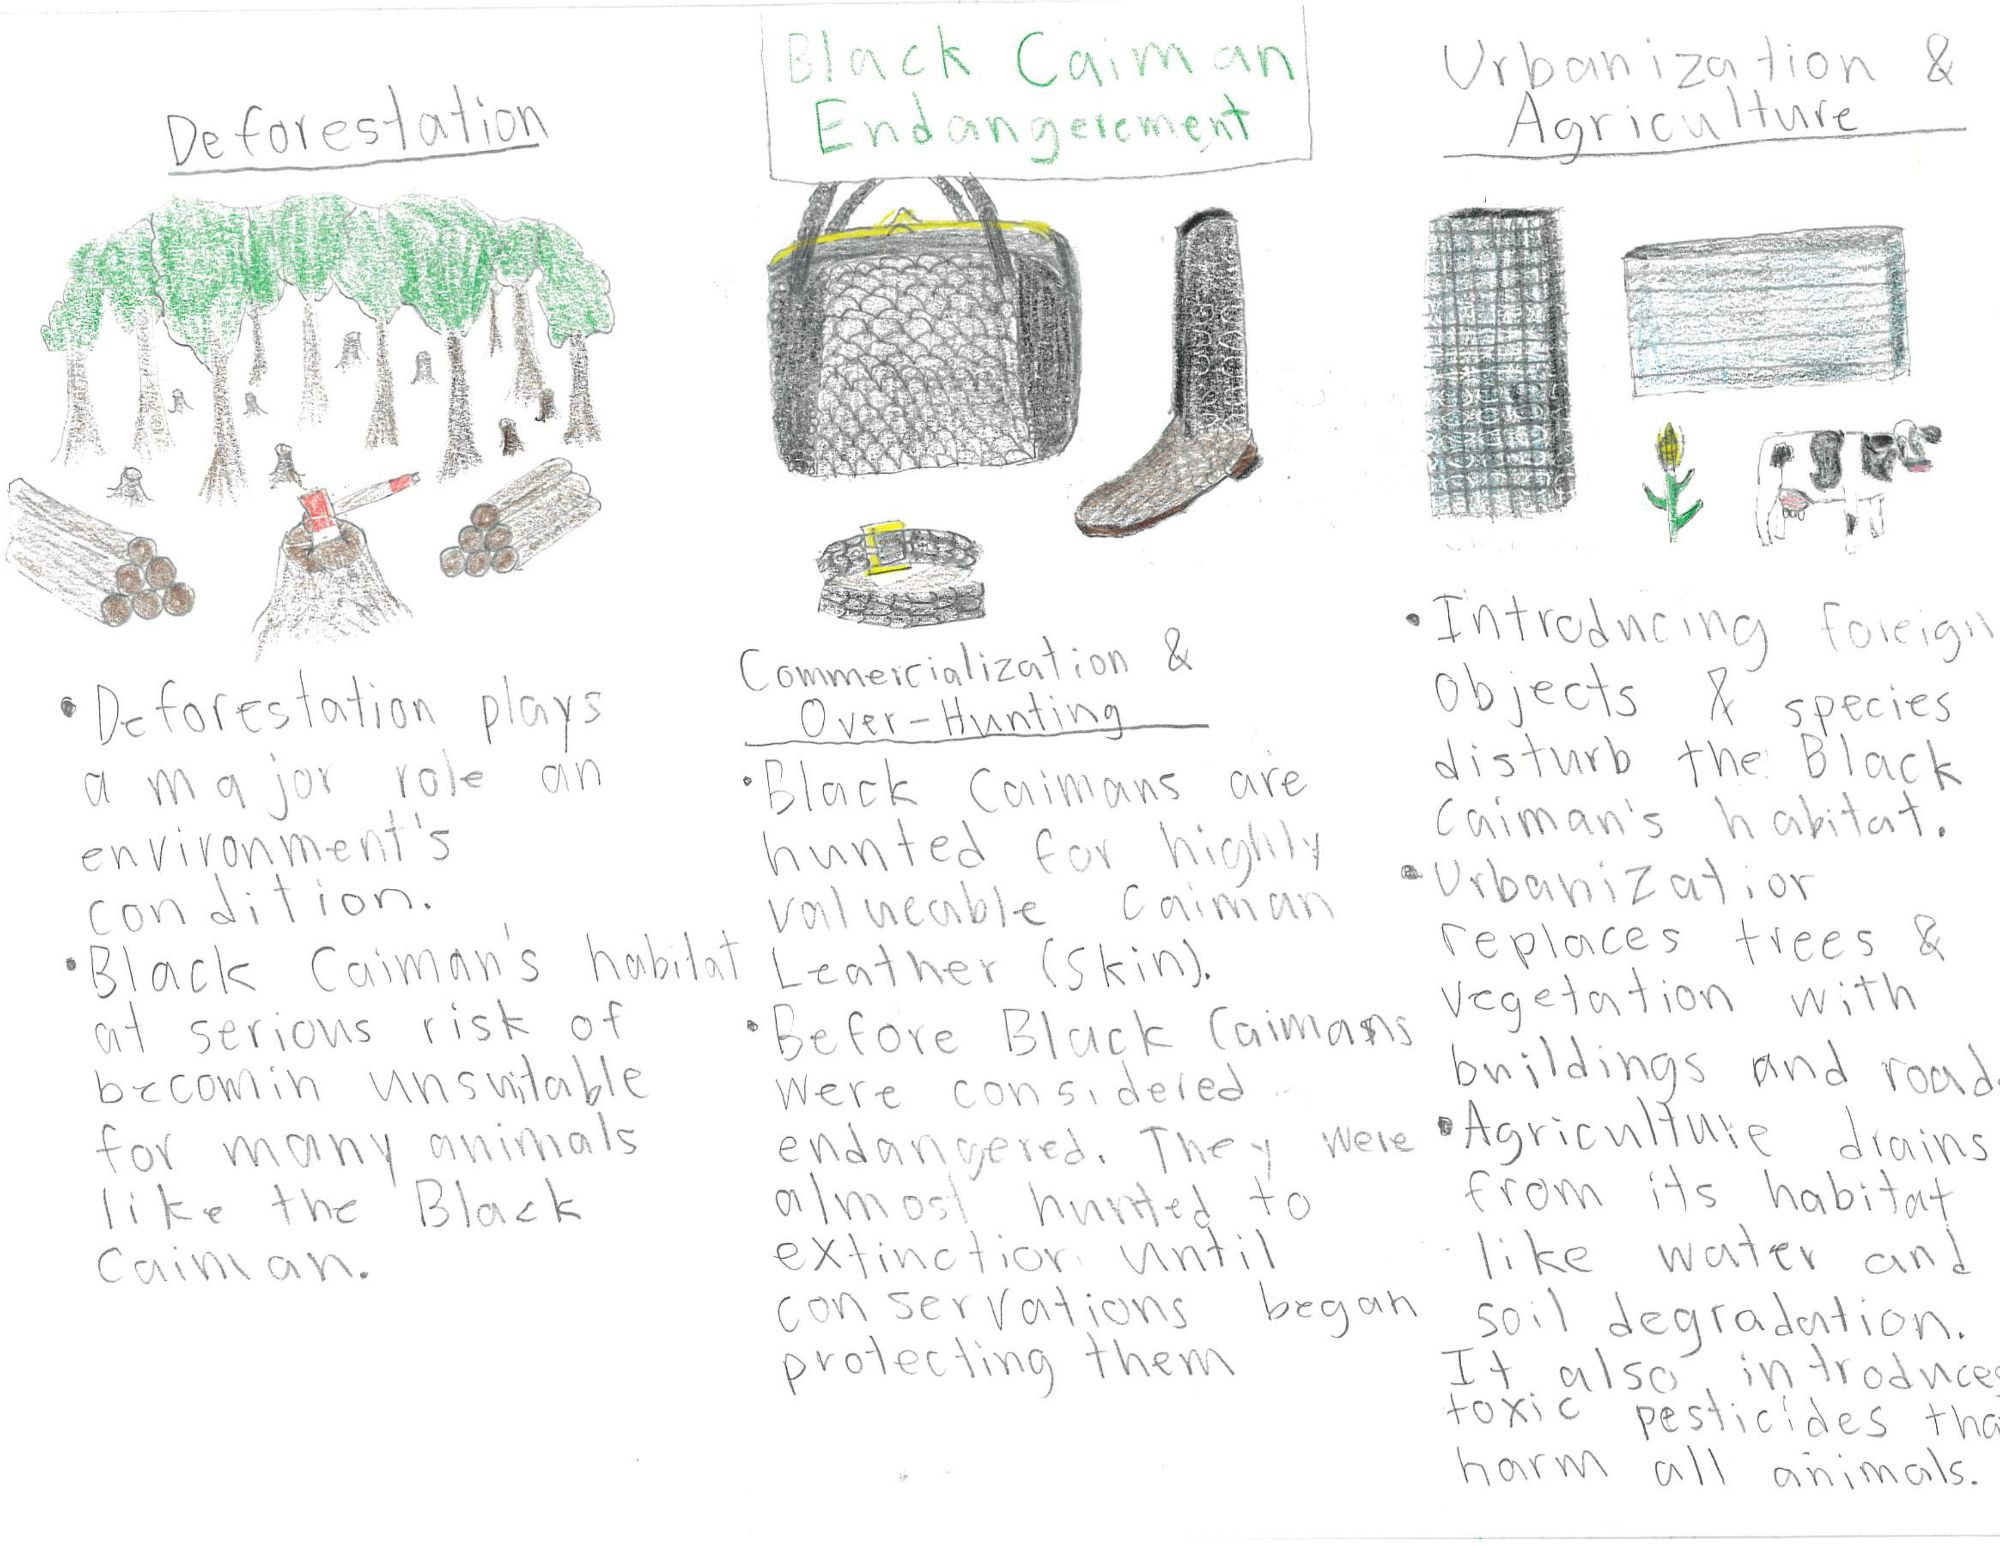 Black Caiman
Endangerement
Deforestation
• Deforestation plays
a major role an
environment's
condition.
• Black Caiman's habitat
at serious risk of
becomin unsuitable
for many animals
like the Black
Caiman.
Commercialization &
Over-Hunting
• Black Caimans are
hunted for highly
valueable Caiman
Leather (Skin).
• Before Black Caimans
were considered
endangered. They were
almost hunted to
extinction until
conservations began
protecting them
Urbanization &
Agriculture
• Introducing foreign
objects & species
disturb the Black
Caiman's habitat.
• Urbanization
replaces trees &
vegetation with
buildings and road
• Agriculture drains
from its habitat
like water and
soil degradation.
It also introduces
toxic pesticides tha
harm all animals.